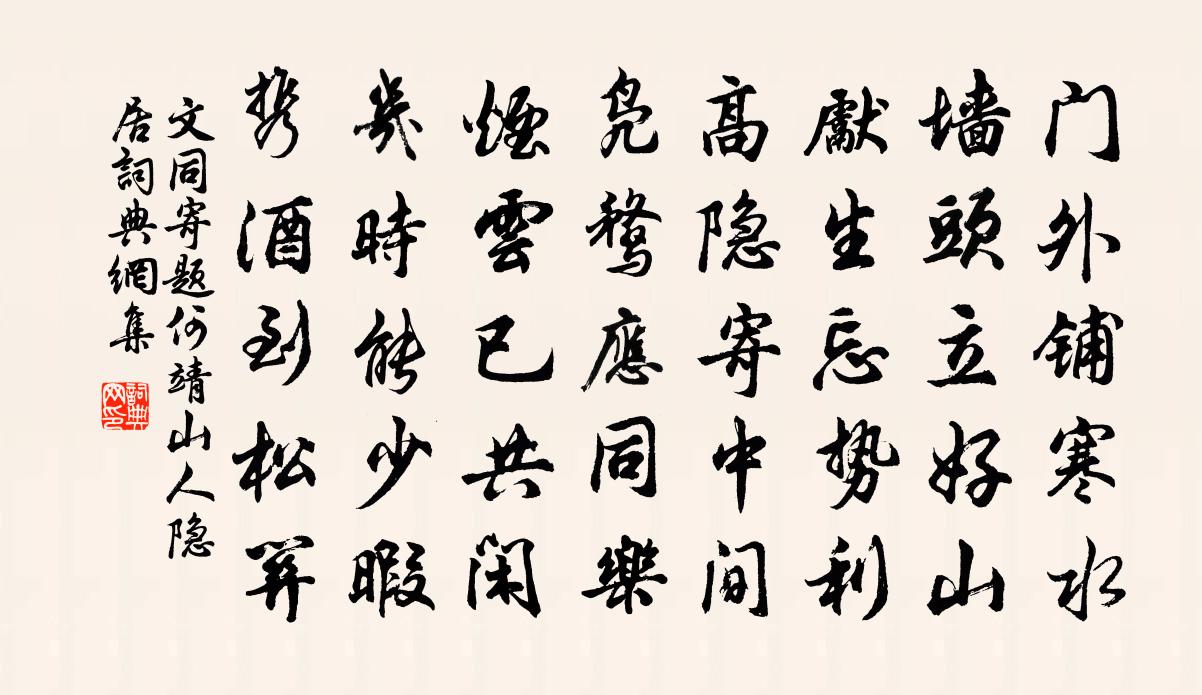 门外铺寒水
墙头立好山
獻生忘势利
高隐寄中间
凫鶩應同樂
煙雲已共闲
幾時能少暇
携酒到松關
文同寄题何靖山人隐
居詞典網集
詞典网印